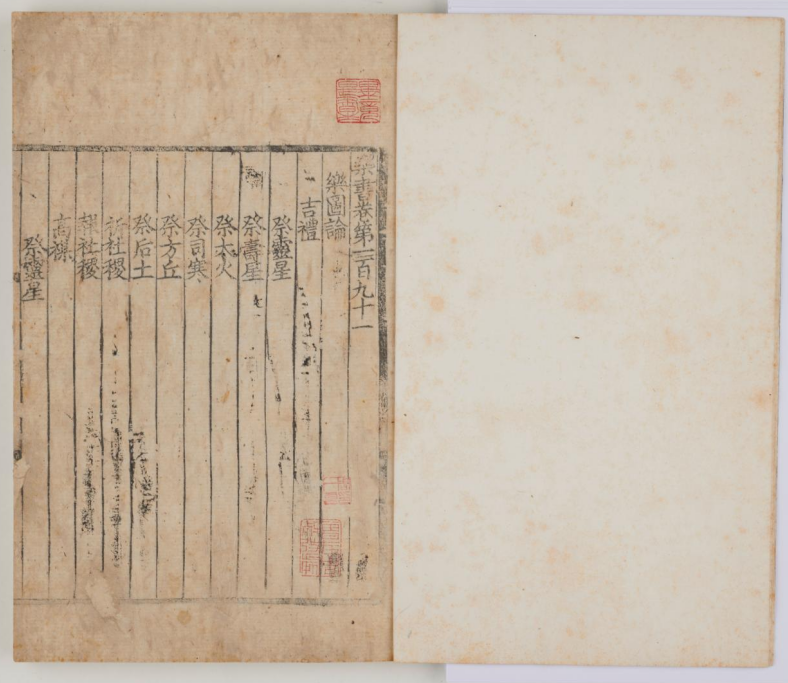 樂書卷第一百九十一
樂圖論
吉禮
祭靈星
祭壽星
祭大火
祭司寒
祭方丘
祭后土
祈社稷
報社稷
高禖
祭靈星